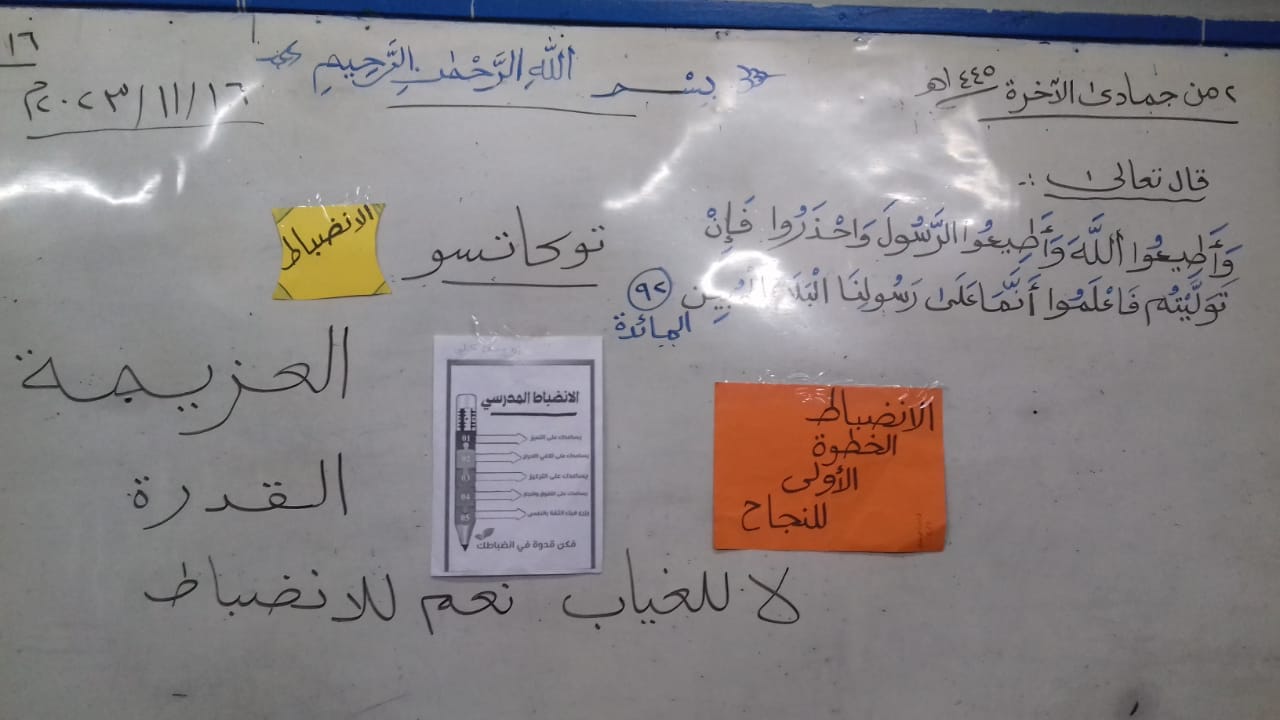 ١٦
بِسْمِ اللهِ الرَّحْمٰنِ الرَّحِيمِ
٢ من جمادىٰ الآخرة ١٤٤٥هـ
٢٠٢٣/١١/١٦م
قال تعالىٰ :-
وَأَطِيعُوا اللَّهَ وَأَطِيعُوا الرَّسُولَ وَاحْذَرُوا فَإِنْ
تَوَلَّيْتُم فَاعْلَمُوا أَنَّمَا عَلَىٰ رَسُولِنَا الْبَلَاغُ الْمُبِين ٩٢
المائدة
توكاتسو
الانضباط
العزيمة
القدرة
الانضباط المدرسي
01 يساعدك على التميز
02
03 يساعدك على التركيز
04
05
فكن قدوة في انضباطك
الانضباط
الخطوة
الأولى
للنجاح
لا للغياب نعم للانضباط